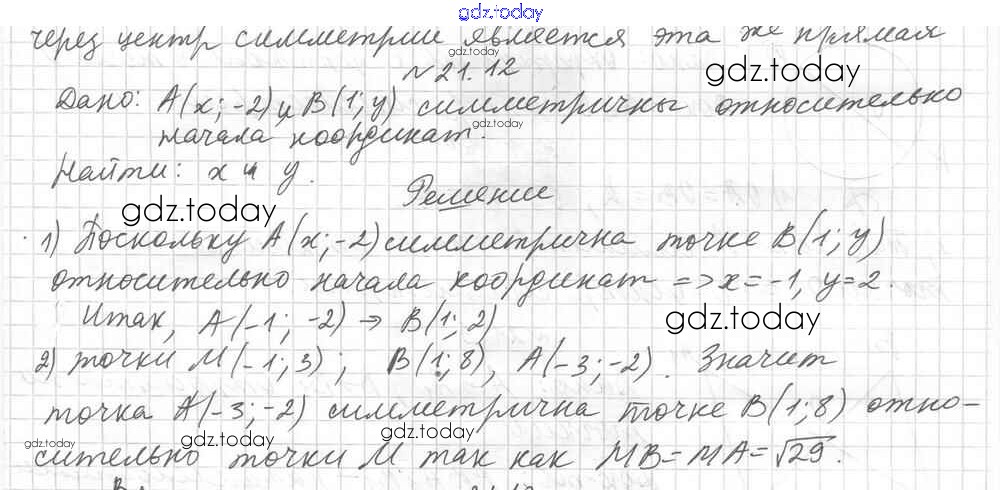 gdz.today
через центр симметрии является эта же прямая
gdz.today
№21.12
gdz.today
Дано: А(x; -2) и В(1; y) симметричны относительно
gdz.today
начала координат.
Найти: x и y.
Решение
gdz.today
1) Поскольку А(x; -2) симметрична точке В(1; y)
относительно начала координат => x = -1, y = 2.
Итак, А(-1; -2) → В(1; 2)
gdz.today
2) точки М(-1; 3); В(1; 8), А(-3; -2). Значит
точка А(-3; -2) симметрична точке В(1; 8) отно-
gdz.today gdz.today gdz.today
сительно точки М. так как МВ = МА = √29.